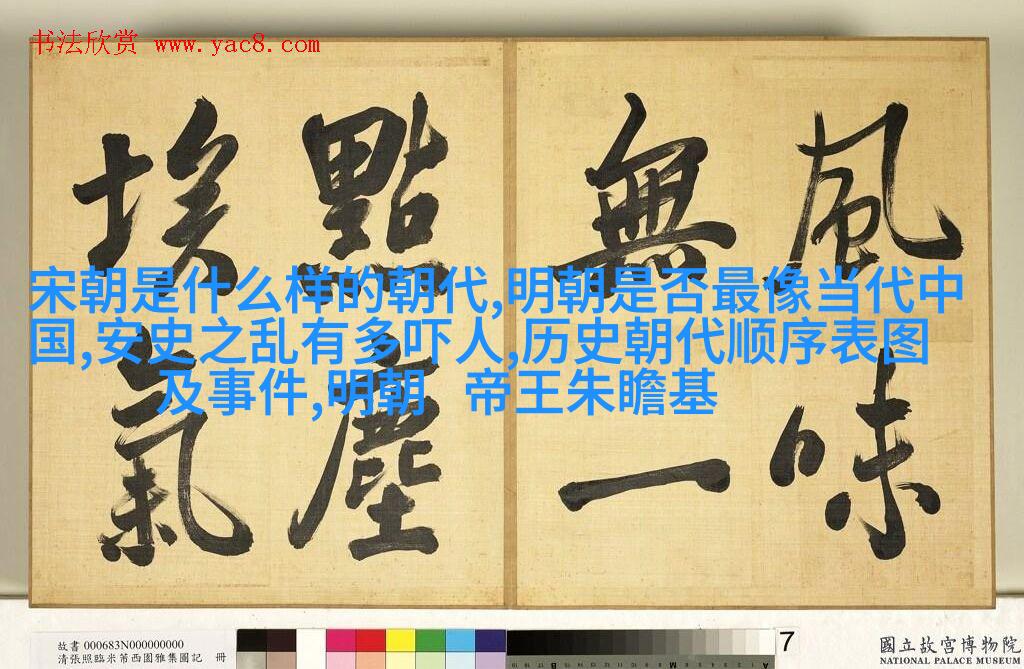 书法欣赏 www.yac8.com
風味
無一
點塵
埃氣
宋朝是什么样的朝代,明朝是否最像当代中
国,安史之乱有多吓人,历史朝代顺序表图
及事件,明朝 帝王朱瞻基
故書 000683N000000000
清張照臨米芾西園雅集圖記 冊
7
國立故宮博物院
NATIONAL PALACE MUSEUM